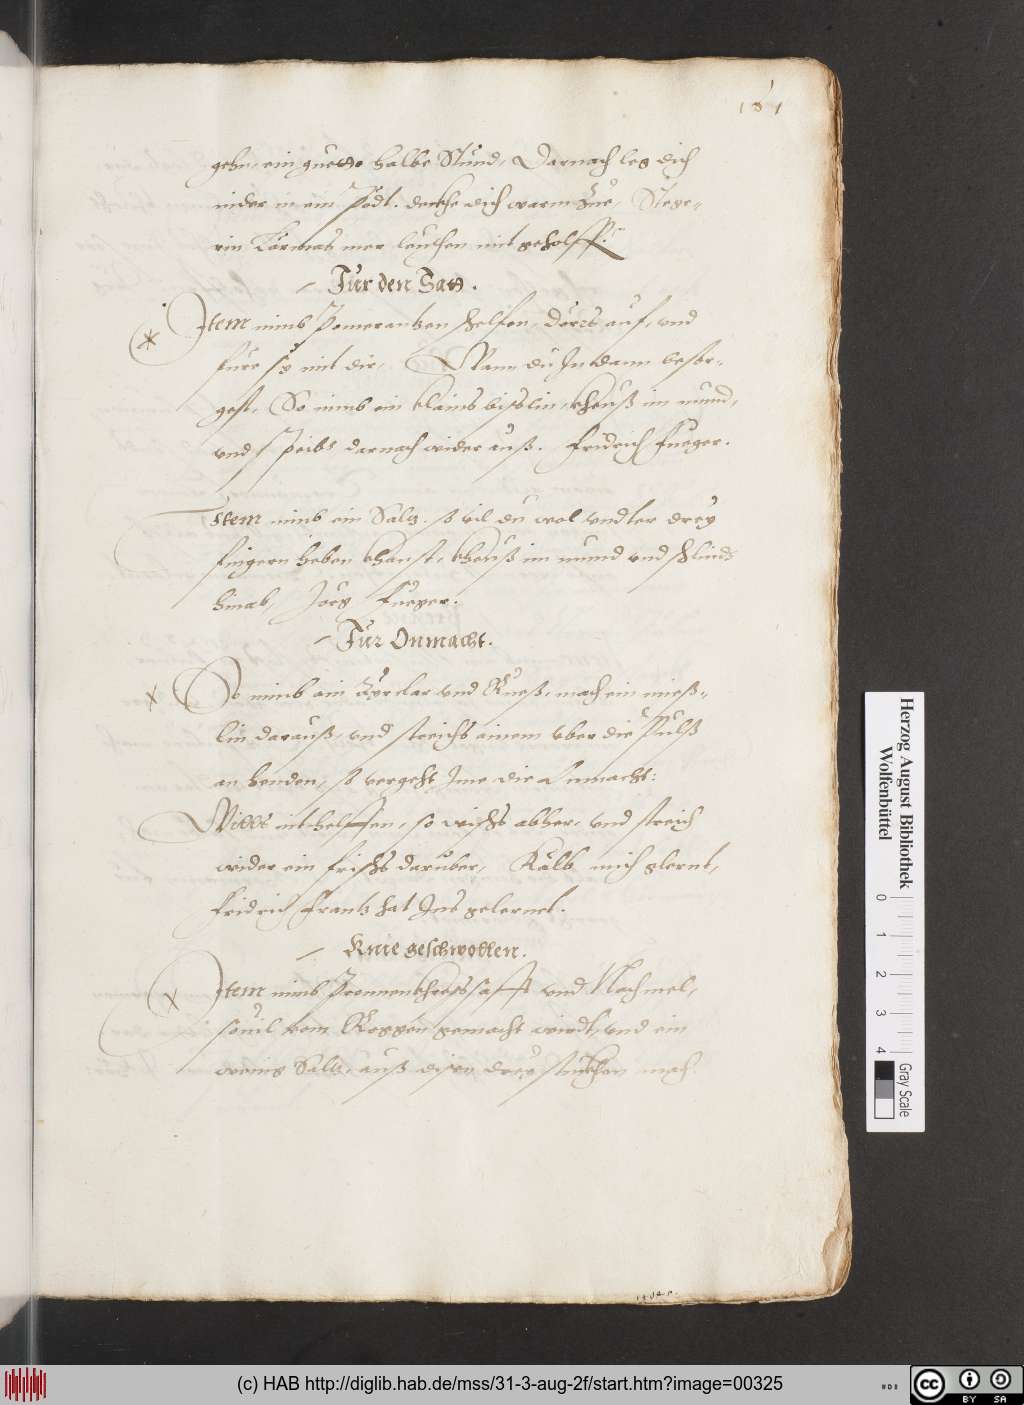 161
gehn, ein guette halbe Stund, Darnach leg dich
nider in ein Pedt. deckhe dich warm Zue,
rin mer leuthen mit geholffen.
Für den Satt.
Item nimb Pomerantzen schelfen, derrs auf, und
füre sy mit dir, Wann du In dann besor-
gest, So nimb ein khlains bisslin, kheuß im mund,
und speibs darnach wider auß. Fridrich Fueger.
Item nimb ein Saltz. so vil du wol undter drey
fingern heben khanst, kheuß im mund und schlinds
hinab, Jörg Fueger.
Für Onmacht.
So nimb ain Ayrclar und Rueß, mach ein mieß-
lin darauß, und streichs einem über die Pulß
an henden, so vergeht Ime die Onmacht:
Wills nit helffen, so wischs abher, und streich
wider ein frischs darüber, Kalb mich glernt,
Fridrich Frantz hat Ins gelernet.
Knie geschwollen.
Item nimb Prennenkhressafft und Nachmel,
sovil vom Roggen gemacht wirdt, und ein
wenig Saltz, auß disen drey stuckhen mach
Herzog August Bibliothek
Wolfenbüttel
0 1 2 3 4
Gray Scale
(c) HAB http://diglib.hab.de/mss/31-3-aug-2f/start.htm?image=00325
cc BY SA